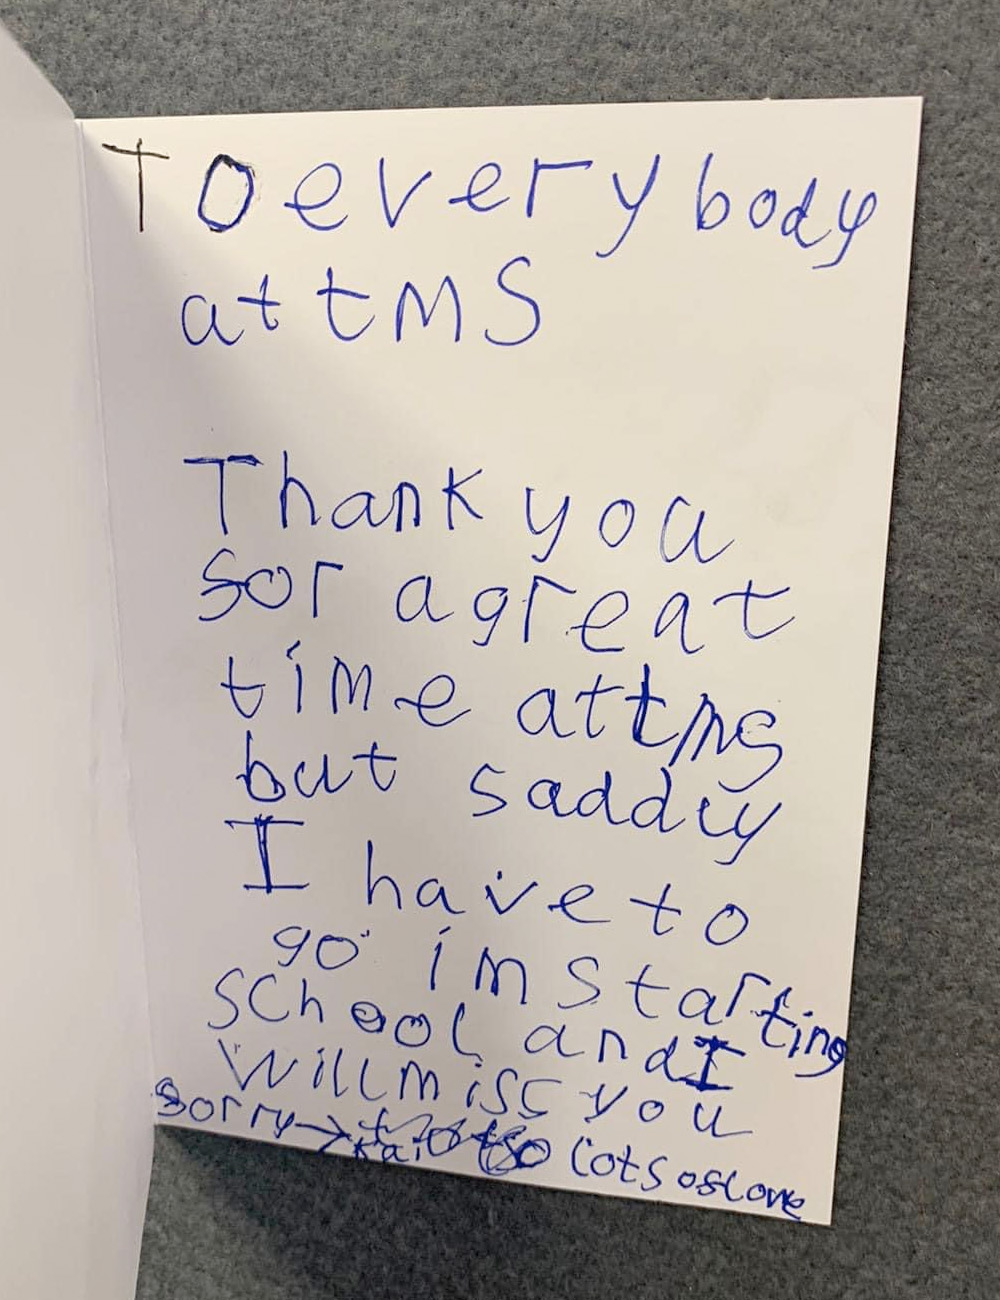 To everybody
at tMS
Thank you
sor a great
time at tms
but saddly
I have to
go im starting
School and I
Will miss you
Sorry → lots os love